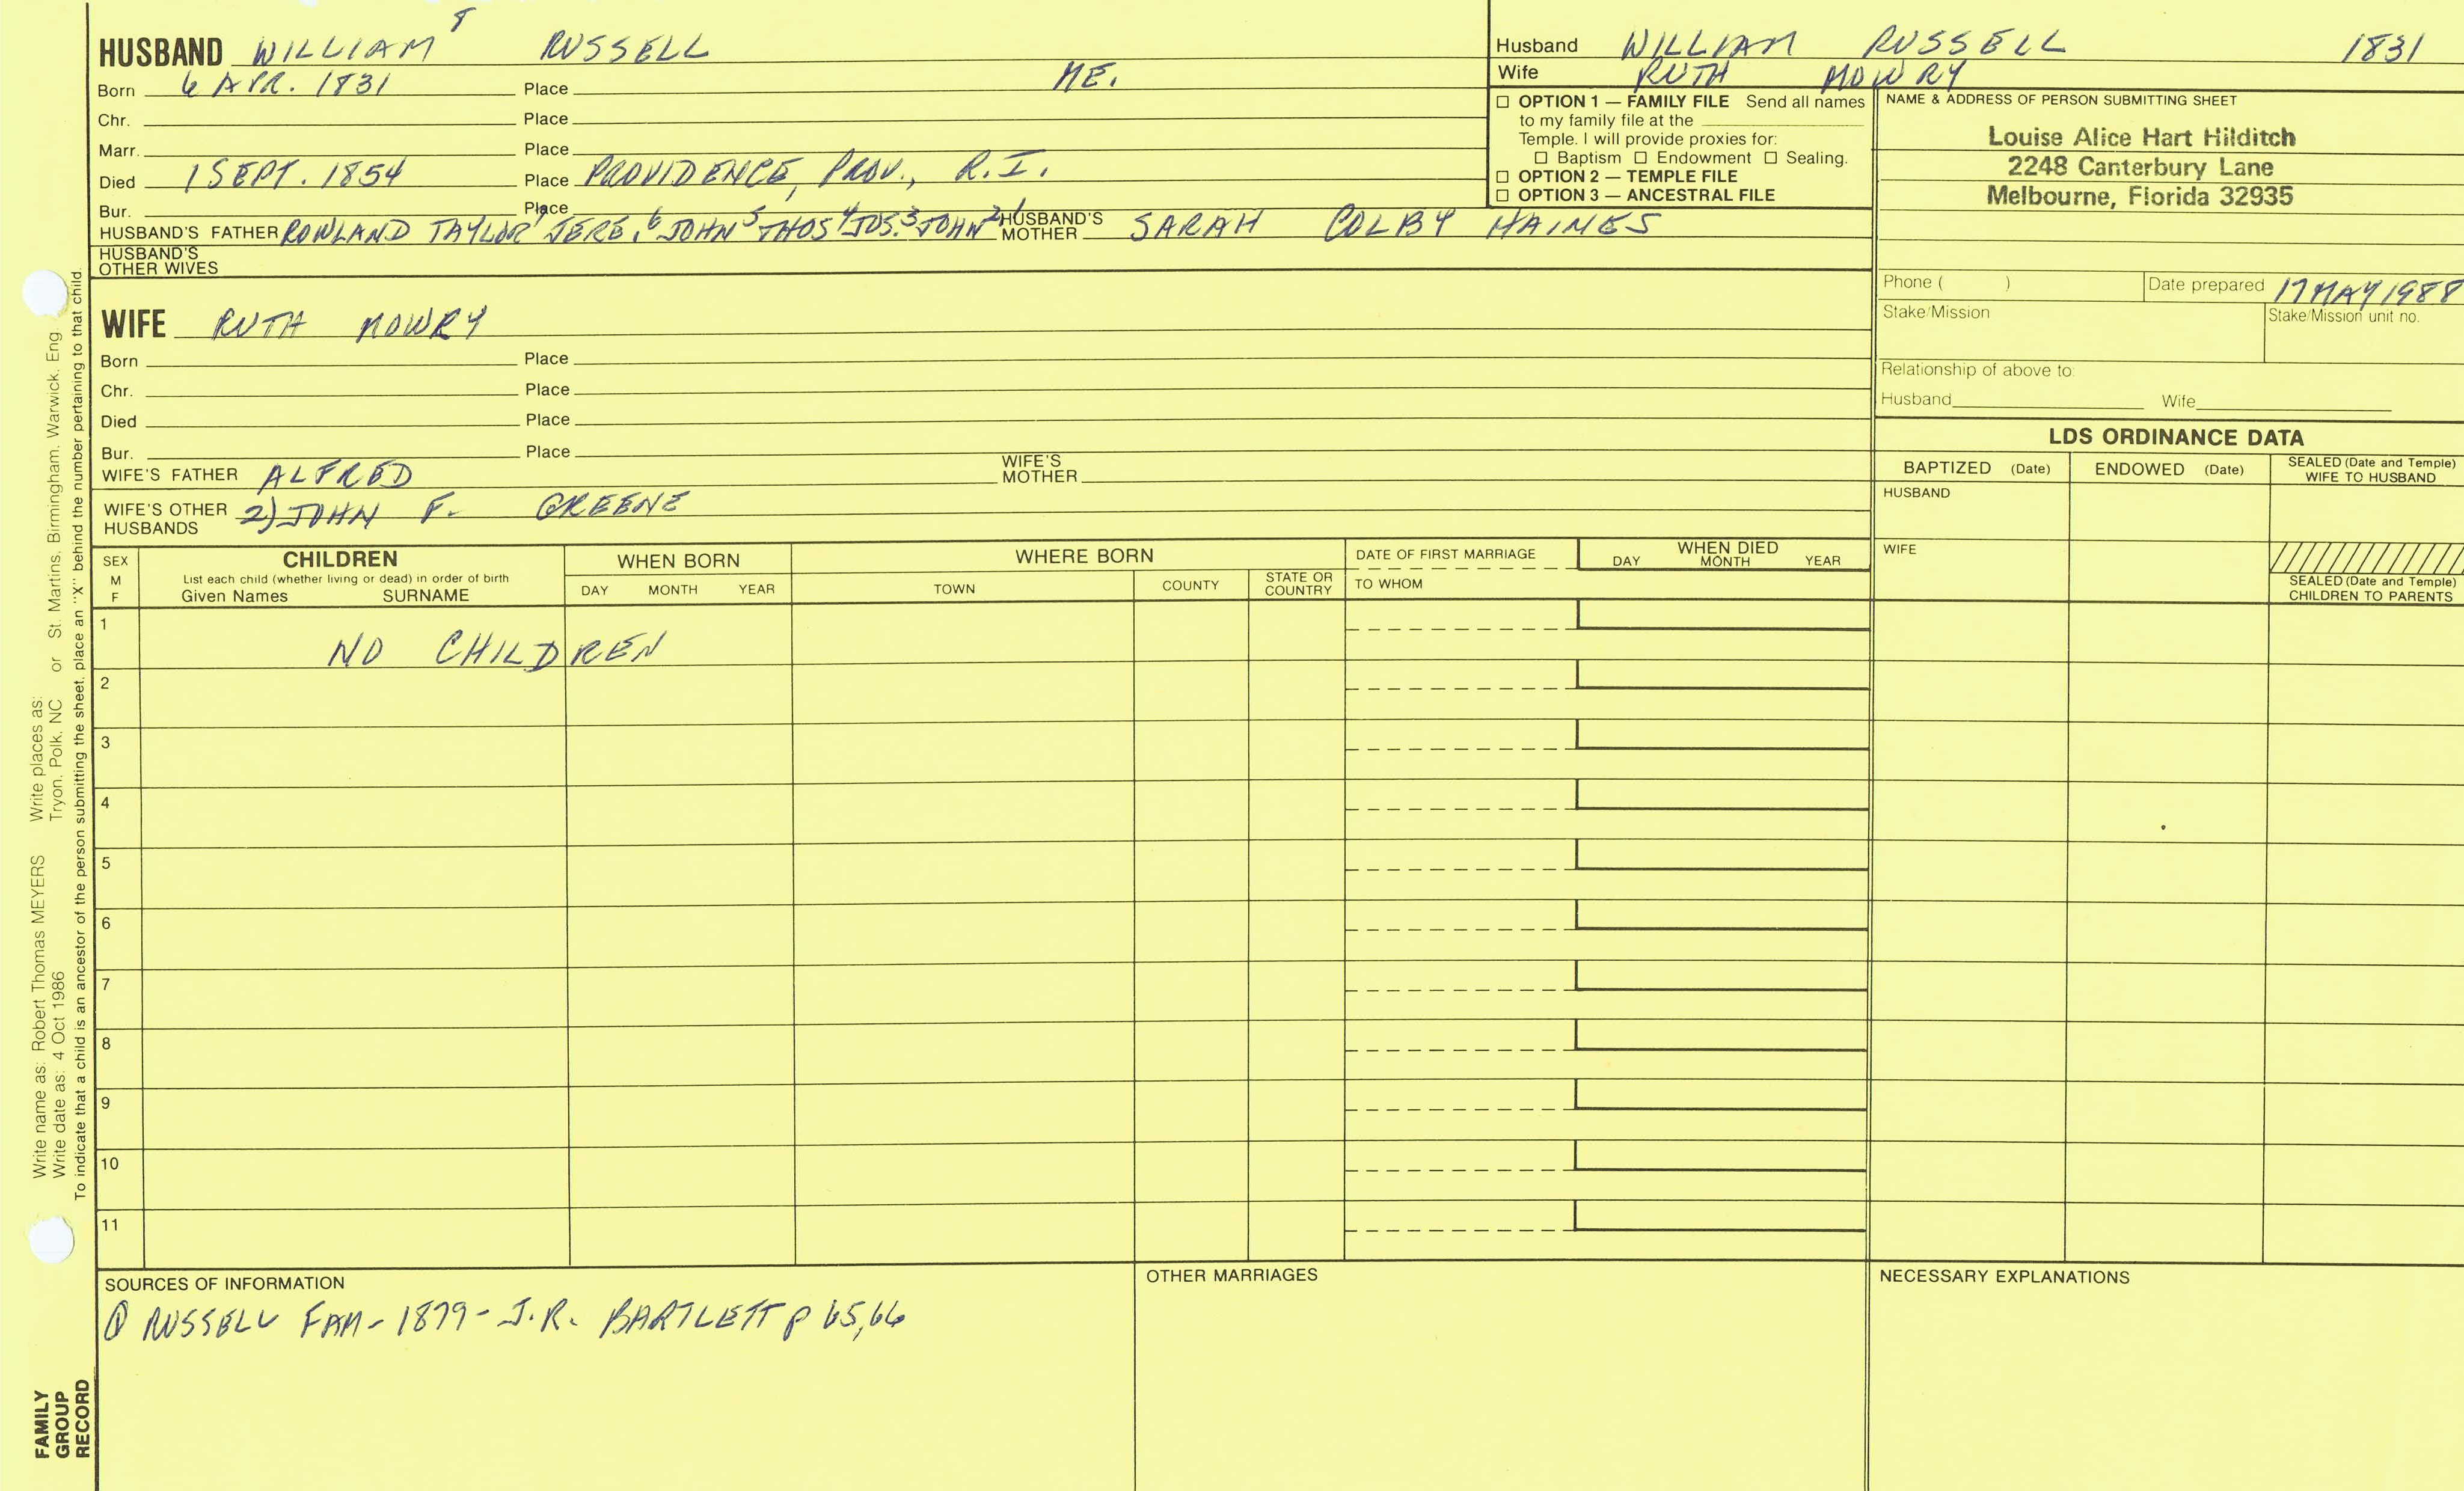 HUSBAND WILLIAM 8 RUSSELL
Born 6 APR. 1831 Place ME.
Chr. Place
Marr. Place
Died 1 SEPT. 1854 Place PROVIDENCE, PROV., R.I.
Bur. Place
HUSBAND'S FATHER ROWLAND TAYLOR 7 JERE. 6 JOHN 5 THOS 4 JOS. 3 JOHN 2, 1 HUSBAND'S MOTHER SARAH COLBY HAINES
HUSBAND'S OTHER WIVES
WIFE RUTH MOWRY
Born Place
Chr. Place
Died Place
Bur. Place
WIFE'S FATHER ALFRED WIFE'S MOTHER
WIFE'S OTHER HUSBANDS 2) JOHN F. GREENE
Husband WILLIAM RUSSELL 1831
Wife RUTH MOWRY
☐ OPTION 1 — FAMILY FILE Send all names
to my family file at the
Temple. I will provide proxies for:
☐ Baptism ☐ Endowment ☐ Sealing.
☐ OPTION 2 — TEMPLE FILE
☐ OPTION 3 — ANCESTRAL FILE
NAME & ADDRESS OF PERSON SUBMITTING SHEET
Louise Alice Hart Hilditch
2248 Canterbury Lane
Melbourne, Florida 32935
Phone ( ) Date prepared 17 MAY 1988
Stake/Mission Stake/Mission unit no.
Relationship of above to:
Husband Wife
LDS ORDINANCE DATA
BAPTIZED (Date) ENDOWED (Date) SEALED (Date and Temple) WIFE TO HUSBAND
HUSBAND
WIFE
SEALED (Date and Temple)
CHILDREN TO PARENTS
SEX M F
CHILDREN
List each child (whether living or dead) in order of birth
Given Names SURNAME
WHEN BORN
DAY MONTH YEAR
WHERE BORN
TOWN COUNTY STATE OR COUNTRY
DATE OF FIRST MARRIAGE
TO WHOM
WHEN DIED
DAY MONTH YEAR
1 NO CHILDREN
2
3
4
5
6
7
8
9
10
11
SOURCES OF INFORMATION
① RUSSELL FAM - 1879 - J.R. BARTLETT p 65,66
OTHER MARRIAGES
NECESSARY EXPLANATIONS
Write name as: Robert Thomas MEYERS Write places as:
Write date as: 4 Oct 1986 Tryon, Polk, NC or St. Martins, Birmingham, Warwick, Eng.
To indicate that a child is an ancestor of the person submitting the sheet, place an "X" behind the number pertaining to that child.
FAMILY
GROUP
RECORD